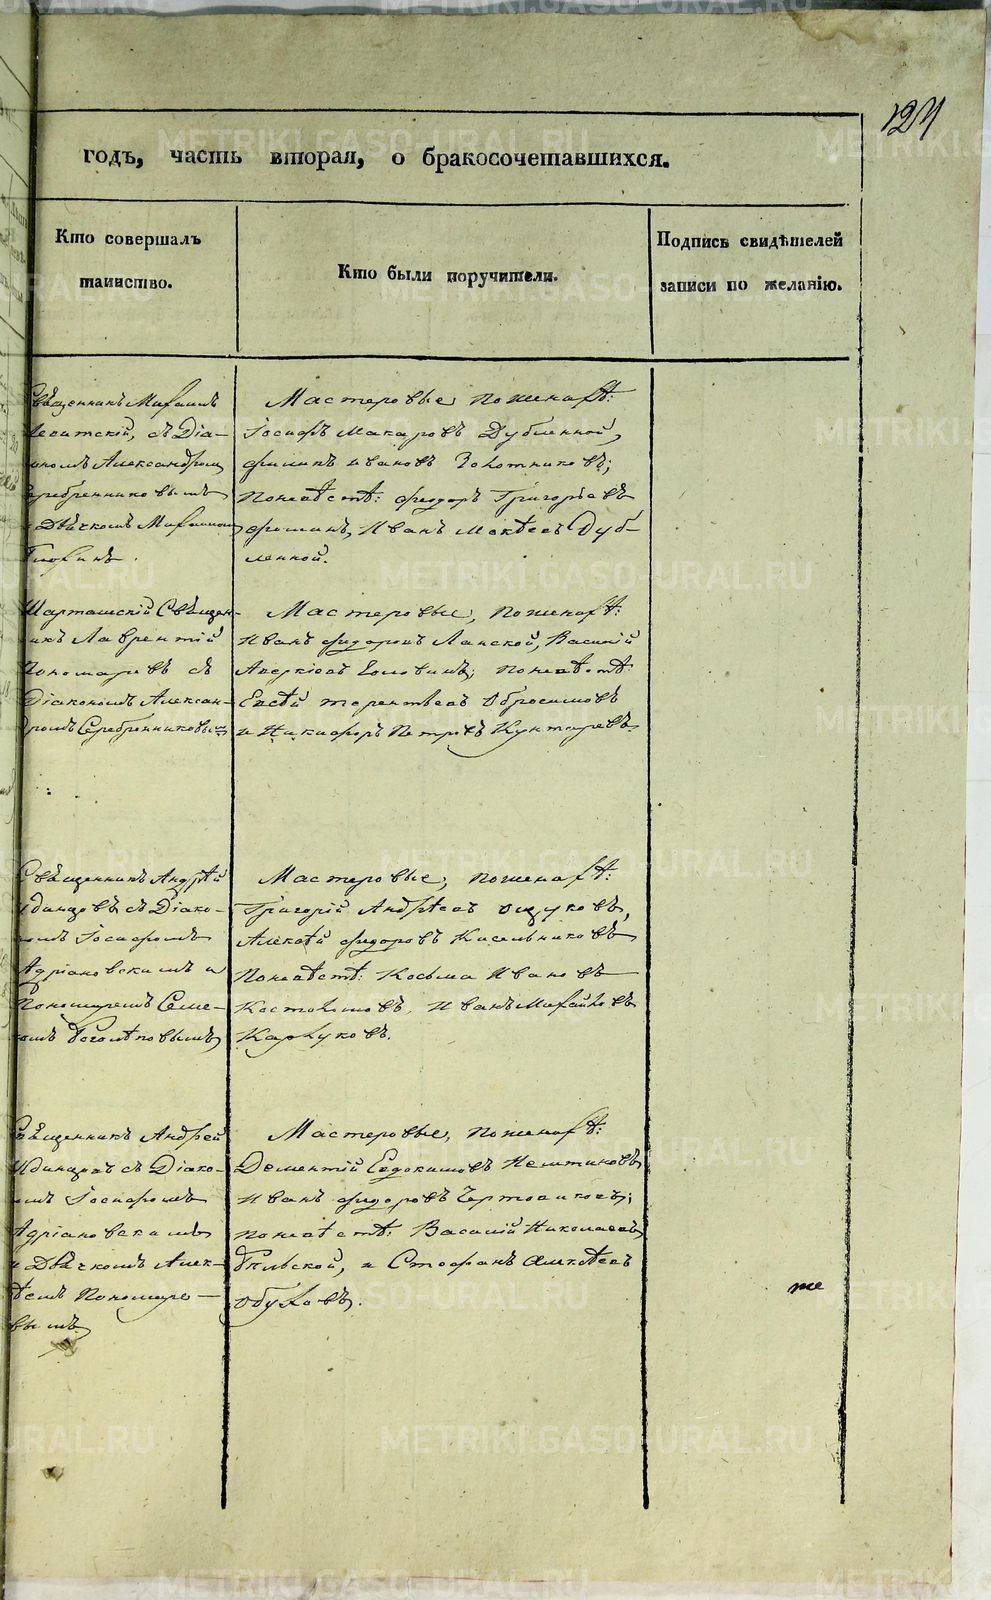 124
годъ, часть вторая, о бракосочетавшихся.
Кто совершалъ
таинство.
Кто были поручители.
Подпись свидѣтелей
записи по желанію.
Священникъ Михаилъ
Левитскій, съ Діа-
кономъ Александромъ
Серебренниковымъ
и Дьячкомъ Михаиломъ
Мастеровые, по женихѣ:
Іосифъ Макаровъ Дубленной,
Филипъ Ивановъ Золотниковъ;
По невѣстѣ: Феодоръ Григорьевъ
Фоминъ, Иванъ Мокѣевъ Дуб-
ленной.
Шарташскій Священ-
никъ Лаврентій
Пономаревъ съ
Діакономъ Алексан-
дромъ Серебренниковымъ
Мастеровые, по женихѣ:
Иванъ Федоровъ Ланской, Василій
Аверкіевъ Головинъ; по невѣстѣ
Евсѣй Терентьевъ Обросимовъ
и Никифоръ Петровъ
Священникъ Андрей
Удинцовъ съ Діако-
номъ Іосифомъ
Адріановскимъ и
Пономаремъ Семе-
номъ Боголѣповымъ
Мастеровые, по женихѣ:
Григорій Андрѣевъ
Алексѣй Федоровъ Кисельниковъ
По невѣстѣ: Косьма Ивановъ
Костоломовъ, Иванъ Михайловъ
Священникъ Андрей
Удинцовъ съ Діако-
номъ Іосифомъ
Адріановскимъ
и Дьячкомъ Алек-
сѣемъ Пономаре-
вымъ
Мастеровые, по женихѣ:
Дементій Евдокимовъ
Иванъ Федоровъ Чертовиковъ;
по невѣстѣ: Василій Николаевъ
Бѣльской, и Стефанъ Алексѣевъ
Обуховъ.
METRIKI.GASO-URAL.RU